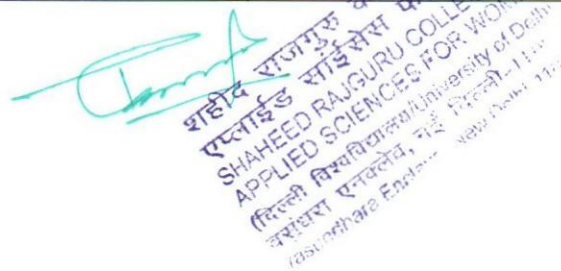 शहीद राजगुरु क
एप्लाईड साईंसेस फ
SHAHEED RAJGURU COLLE
APPLIED SCIENCES FOR WOM
(दिल्ली विश्वविद्यालय/University of Delhi
वसुंधरा एनक्लेव, नई दिल्ली-11
Vasundhara Encl New Delhi 11